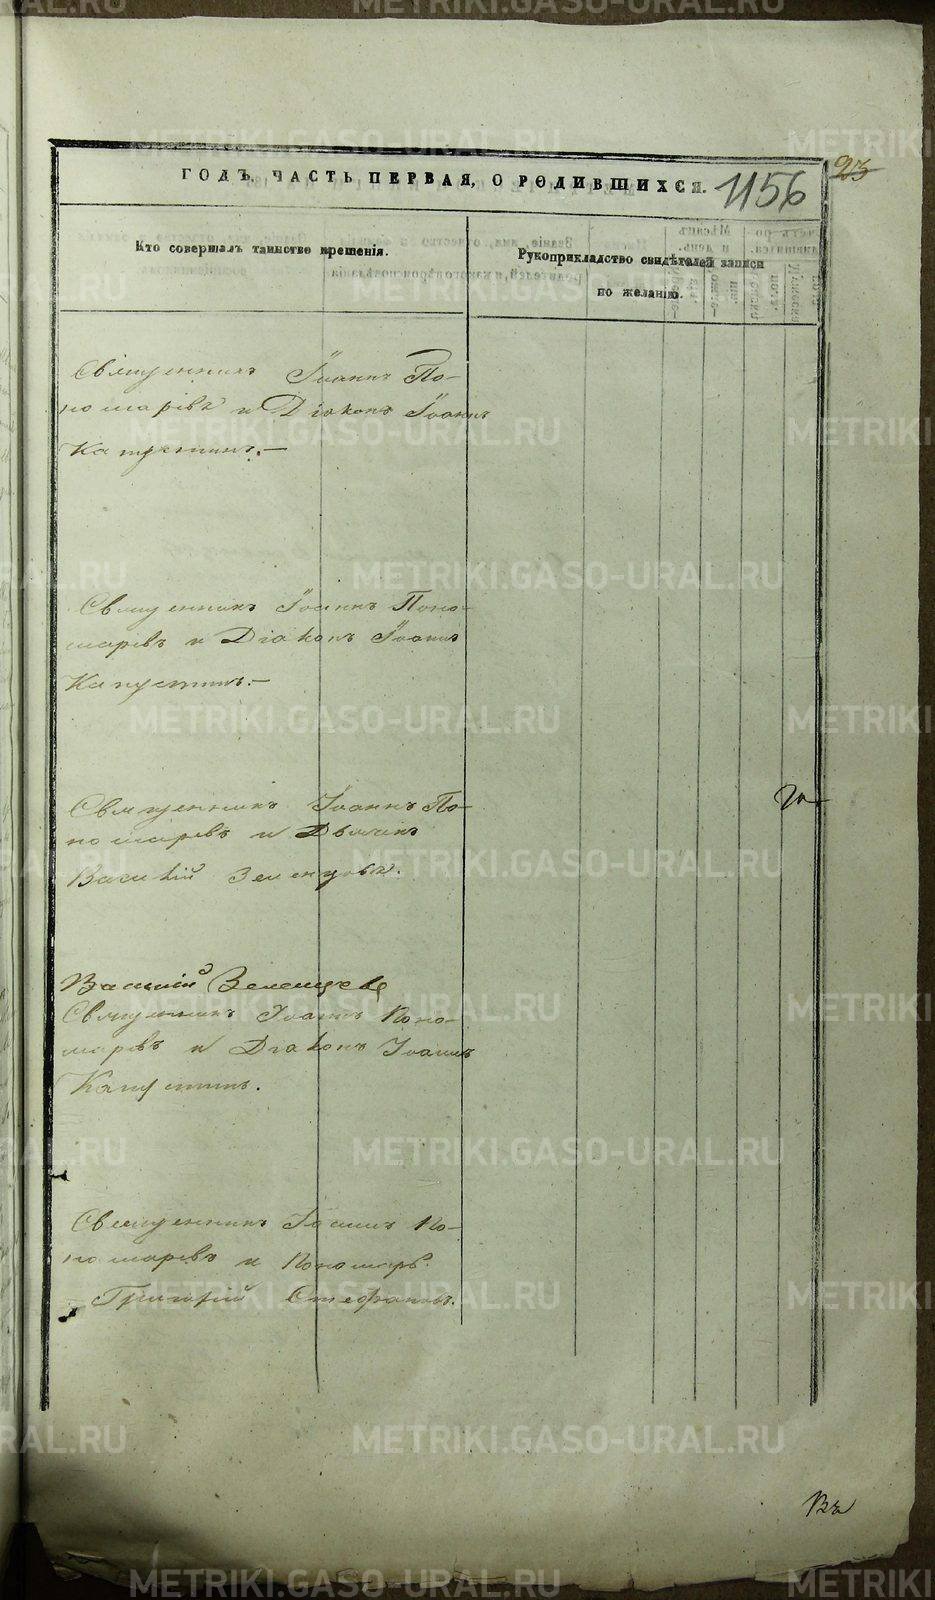 ГОДЪ, ЧАСТЬ ПЕРВАЯ, О РОДИВШИХСЯ.
1156
23
Кто совершалъ таинство крещенія.
Рукоприкладство свидѣтелей записи
по желанію.
Священникъ Іоаннъ По-
номаревъ и Діаконъ Іоаннъ
Капустинъ.—
Священникъ Іоаннъ Поно-
маревъ и Діаконъ Іоаннъ
Капустинъ.—
Священникъ Іоаннъ По-
номаревъ и Дьячекъ
Василій Зеленцовъ.
Василій Зеленцовъ
Священникъ Іоаннъ Поно-
маревъ и Діаконъ Іоаннъ
Капустинъ.
Священникъ Іоаннъ По-
номаревъ и Пономарь
Григорій Стефановъ.
METRIKI.GASO-URAL.RU